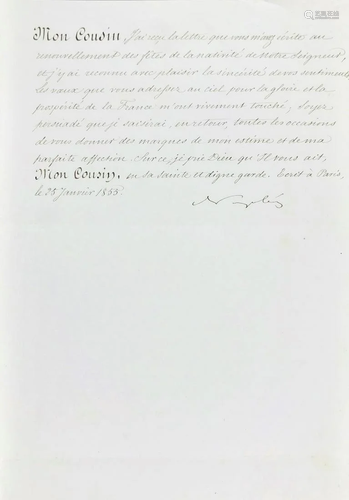 Mon Cousin, J'ai reçu la lettre que vous m'avez écrite au
renouvellement des fêtes de la nativité de Notre Seigneur,
et j'y ai reconnu avec plaisir la sincérité de vos sentiments.
Les vœux que vous adressez au ciel pour la gloire et la
prospérité de la France m'ont vivement touché; soyez
persuadé que je saisirai, en retour, toutes les occasions
de vous donner des marques de mon estime et de ma
parfaite affection. Sur ce, je prie Dieu qu'Il vous ait,
Mon Cousin, en sa sainte et digne garde. Ecrit à Paris,
le 25 Janvier 1853.